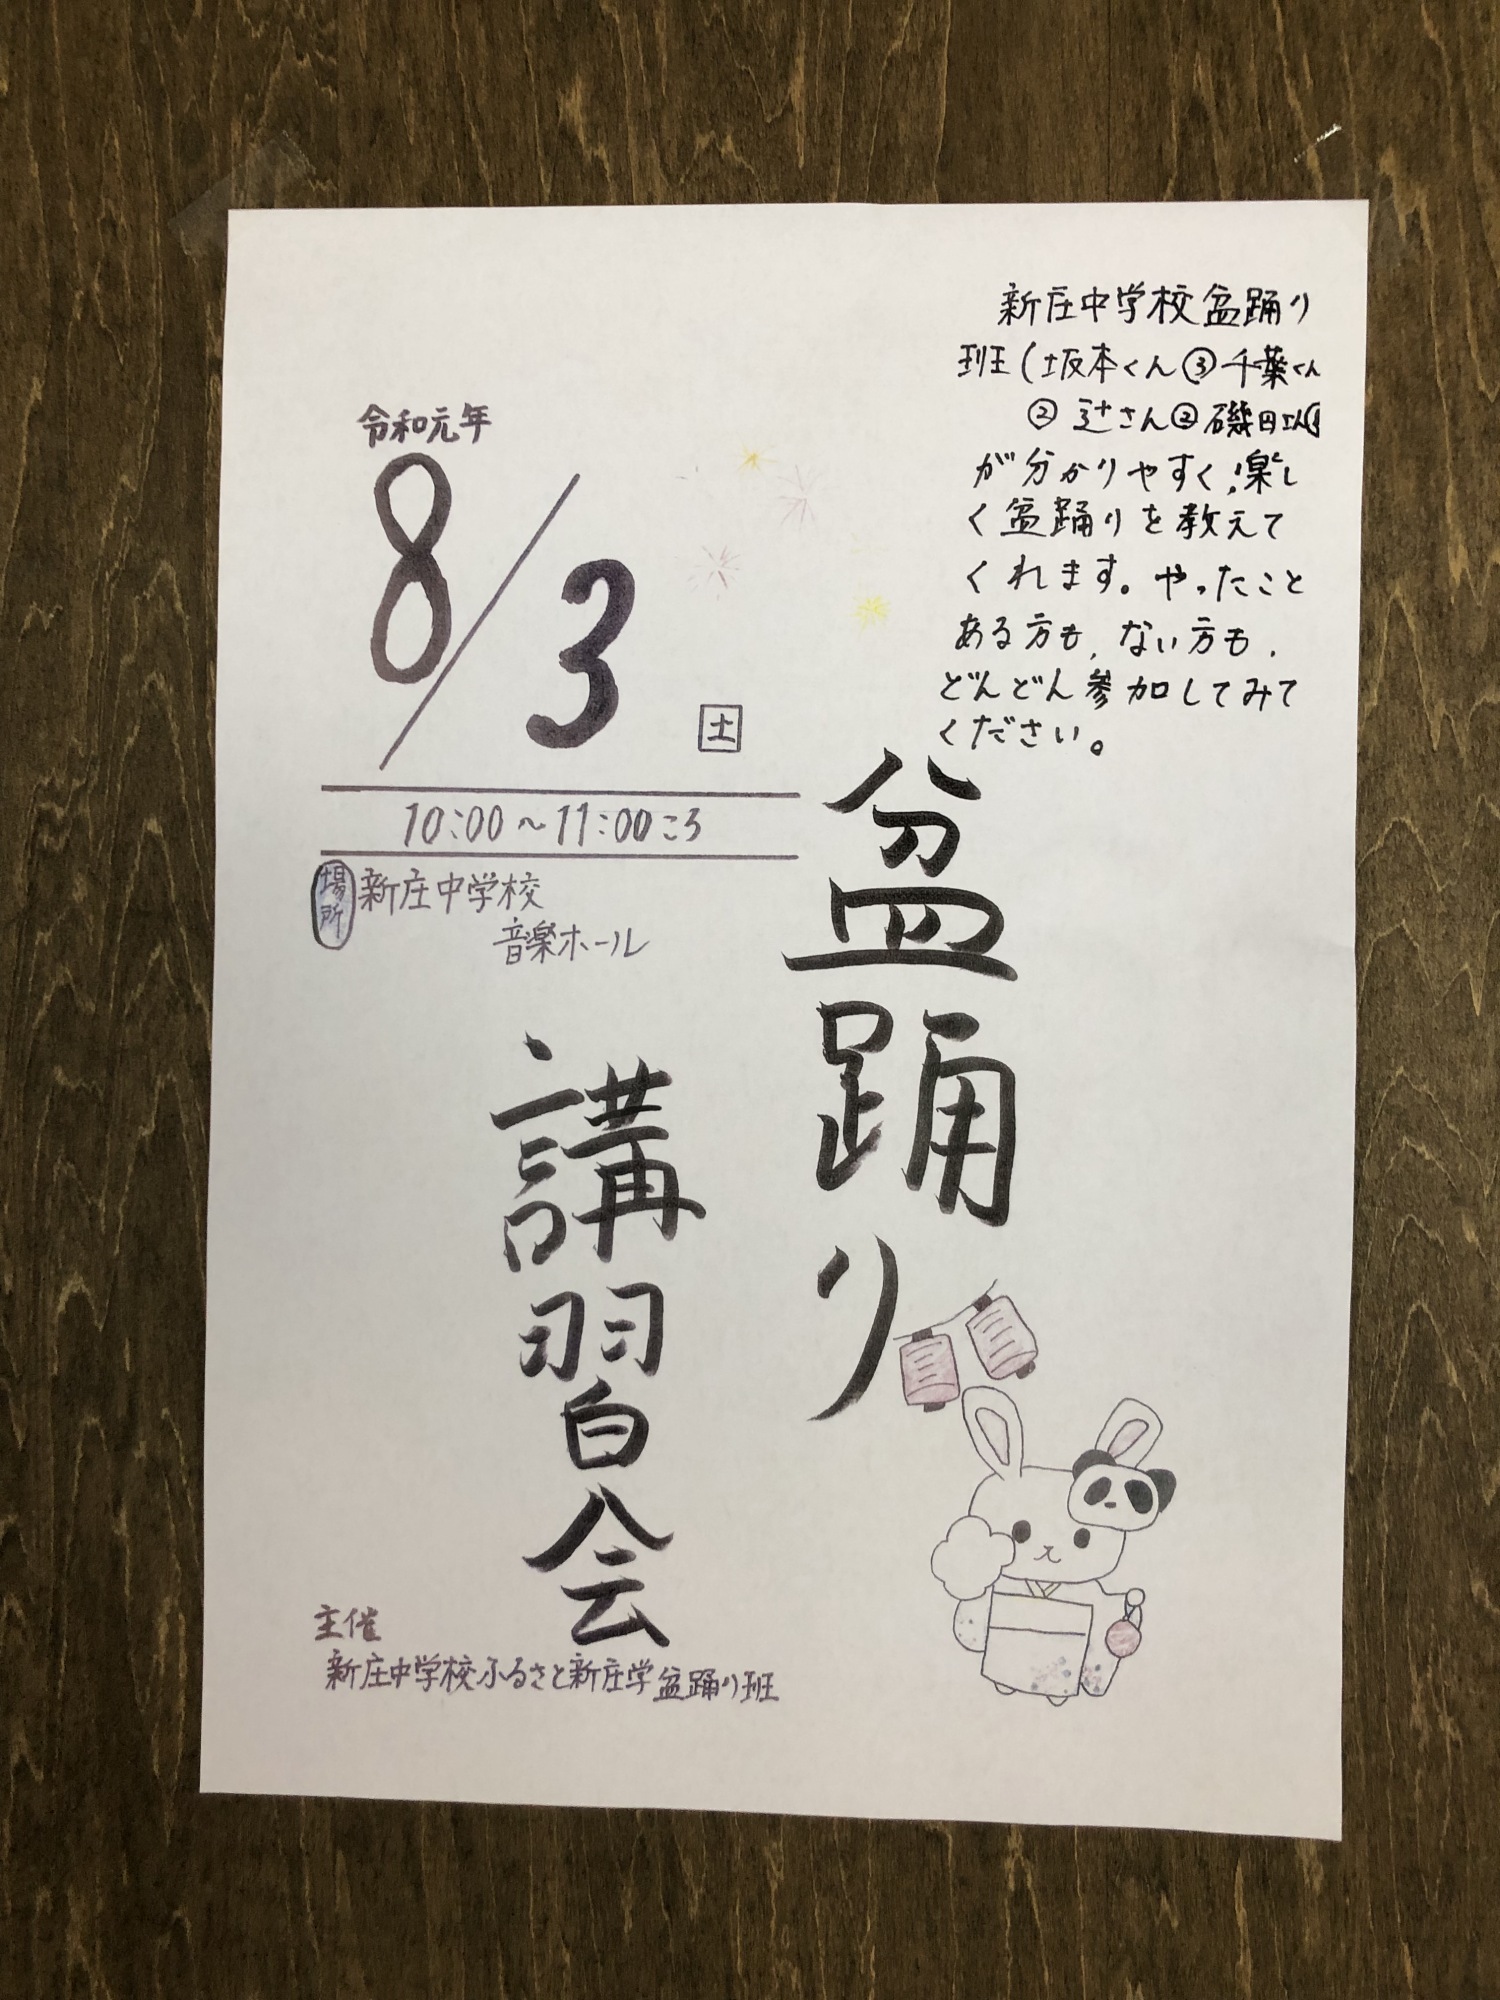 新庄中学校盆踊り
班(坂本くん③千葉くん
② 辻さん②磯田
が分かりやすく、楽し
く盆踊りを教えて
くれます。やったこと
ある方も、ない方も、
どんどん参加してみて
ください。
令和元年
8/3 土
10:00〜11:00ころ
場所 新庄中学校
音楽ホール
盆踊り
講習会
主催
新庄中学校ふるさと新庄学盆踊り班